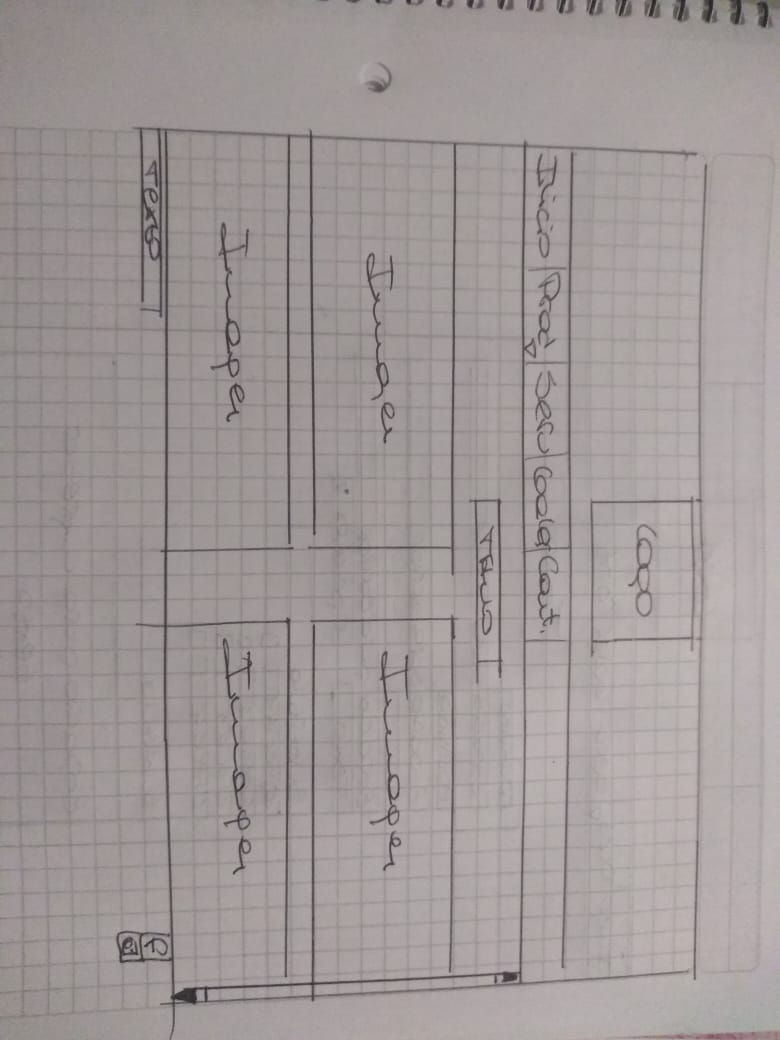 Logo
Inicio | Prod. | Serv | Galer | Cont.
Texto
Imagen Imagen
Imagen Imagen
Texto
f